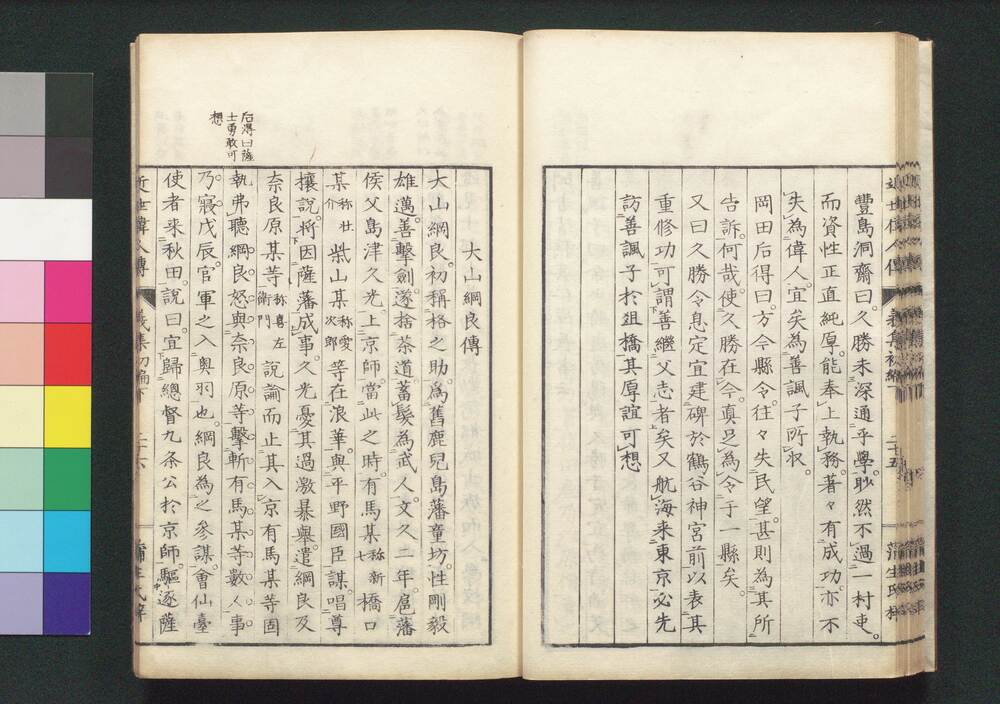 豐島洞齋曰。久勝未深通乎學。眇然不過一村吏。
而資性正直純厚。能奉上執務。著々有成功。亦不
失為偉人。宜矣為善諷子所収。
岡田后得曰。方今縣令。往々失民望。甚則為其所
告訴。何哉。使久勝在今。真足為令于一縣矣。
又曰久勝令息定宜建碑於鶴谷神宮前以表其
重修功。可謂善繼父志者矣。又航海来東京。必先
訪善諷子於俎橋。其厚誼可想
大山綱良傳
大山綱良。初稱格之助。為舊鹿兒島藩童坊。性剛毅
雄邁。善擊劍。遂捨茶道。蓄髮為武人。文久二年。扈藩
侯父島津久光。上京師。當此之時。有馬某 称新七 橋口
某 称壮介 柴山某 称愛次郎 等在浪華。與平野國臣謀。唱尊
攘說。將因薩藩成事。久光憂其過激暴舉。遣綱良及
奈良原某等 称喜左衛門 說論而止其入京。有馬某等固
執弗聽。綱良怒。與奈良原等擊斬有馬某等數人。事
乃寢。戊辰。官軍之入奥羽也。綱良為之參謀。會仙臺
使者来秋田。說曰。宜歸總督九条公於京師。驅逐薩
后得曰薩
士勇敢可
想
近世偉人傳
義集初編下
二十六
蒲生氏梓
二十五